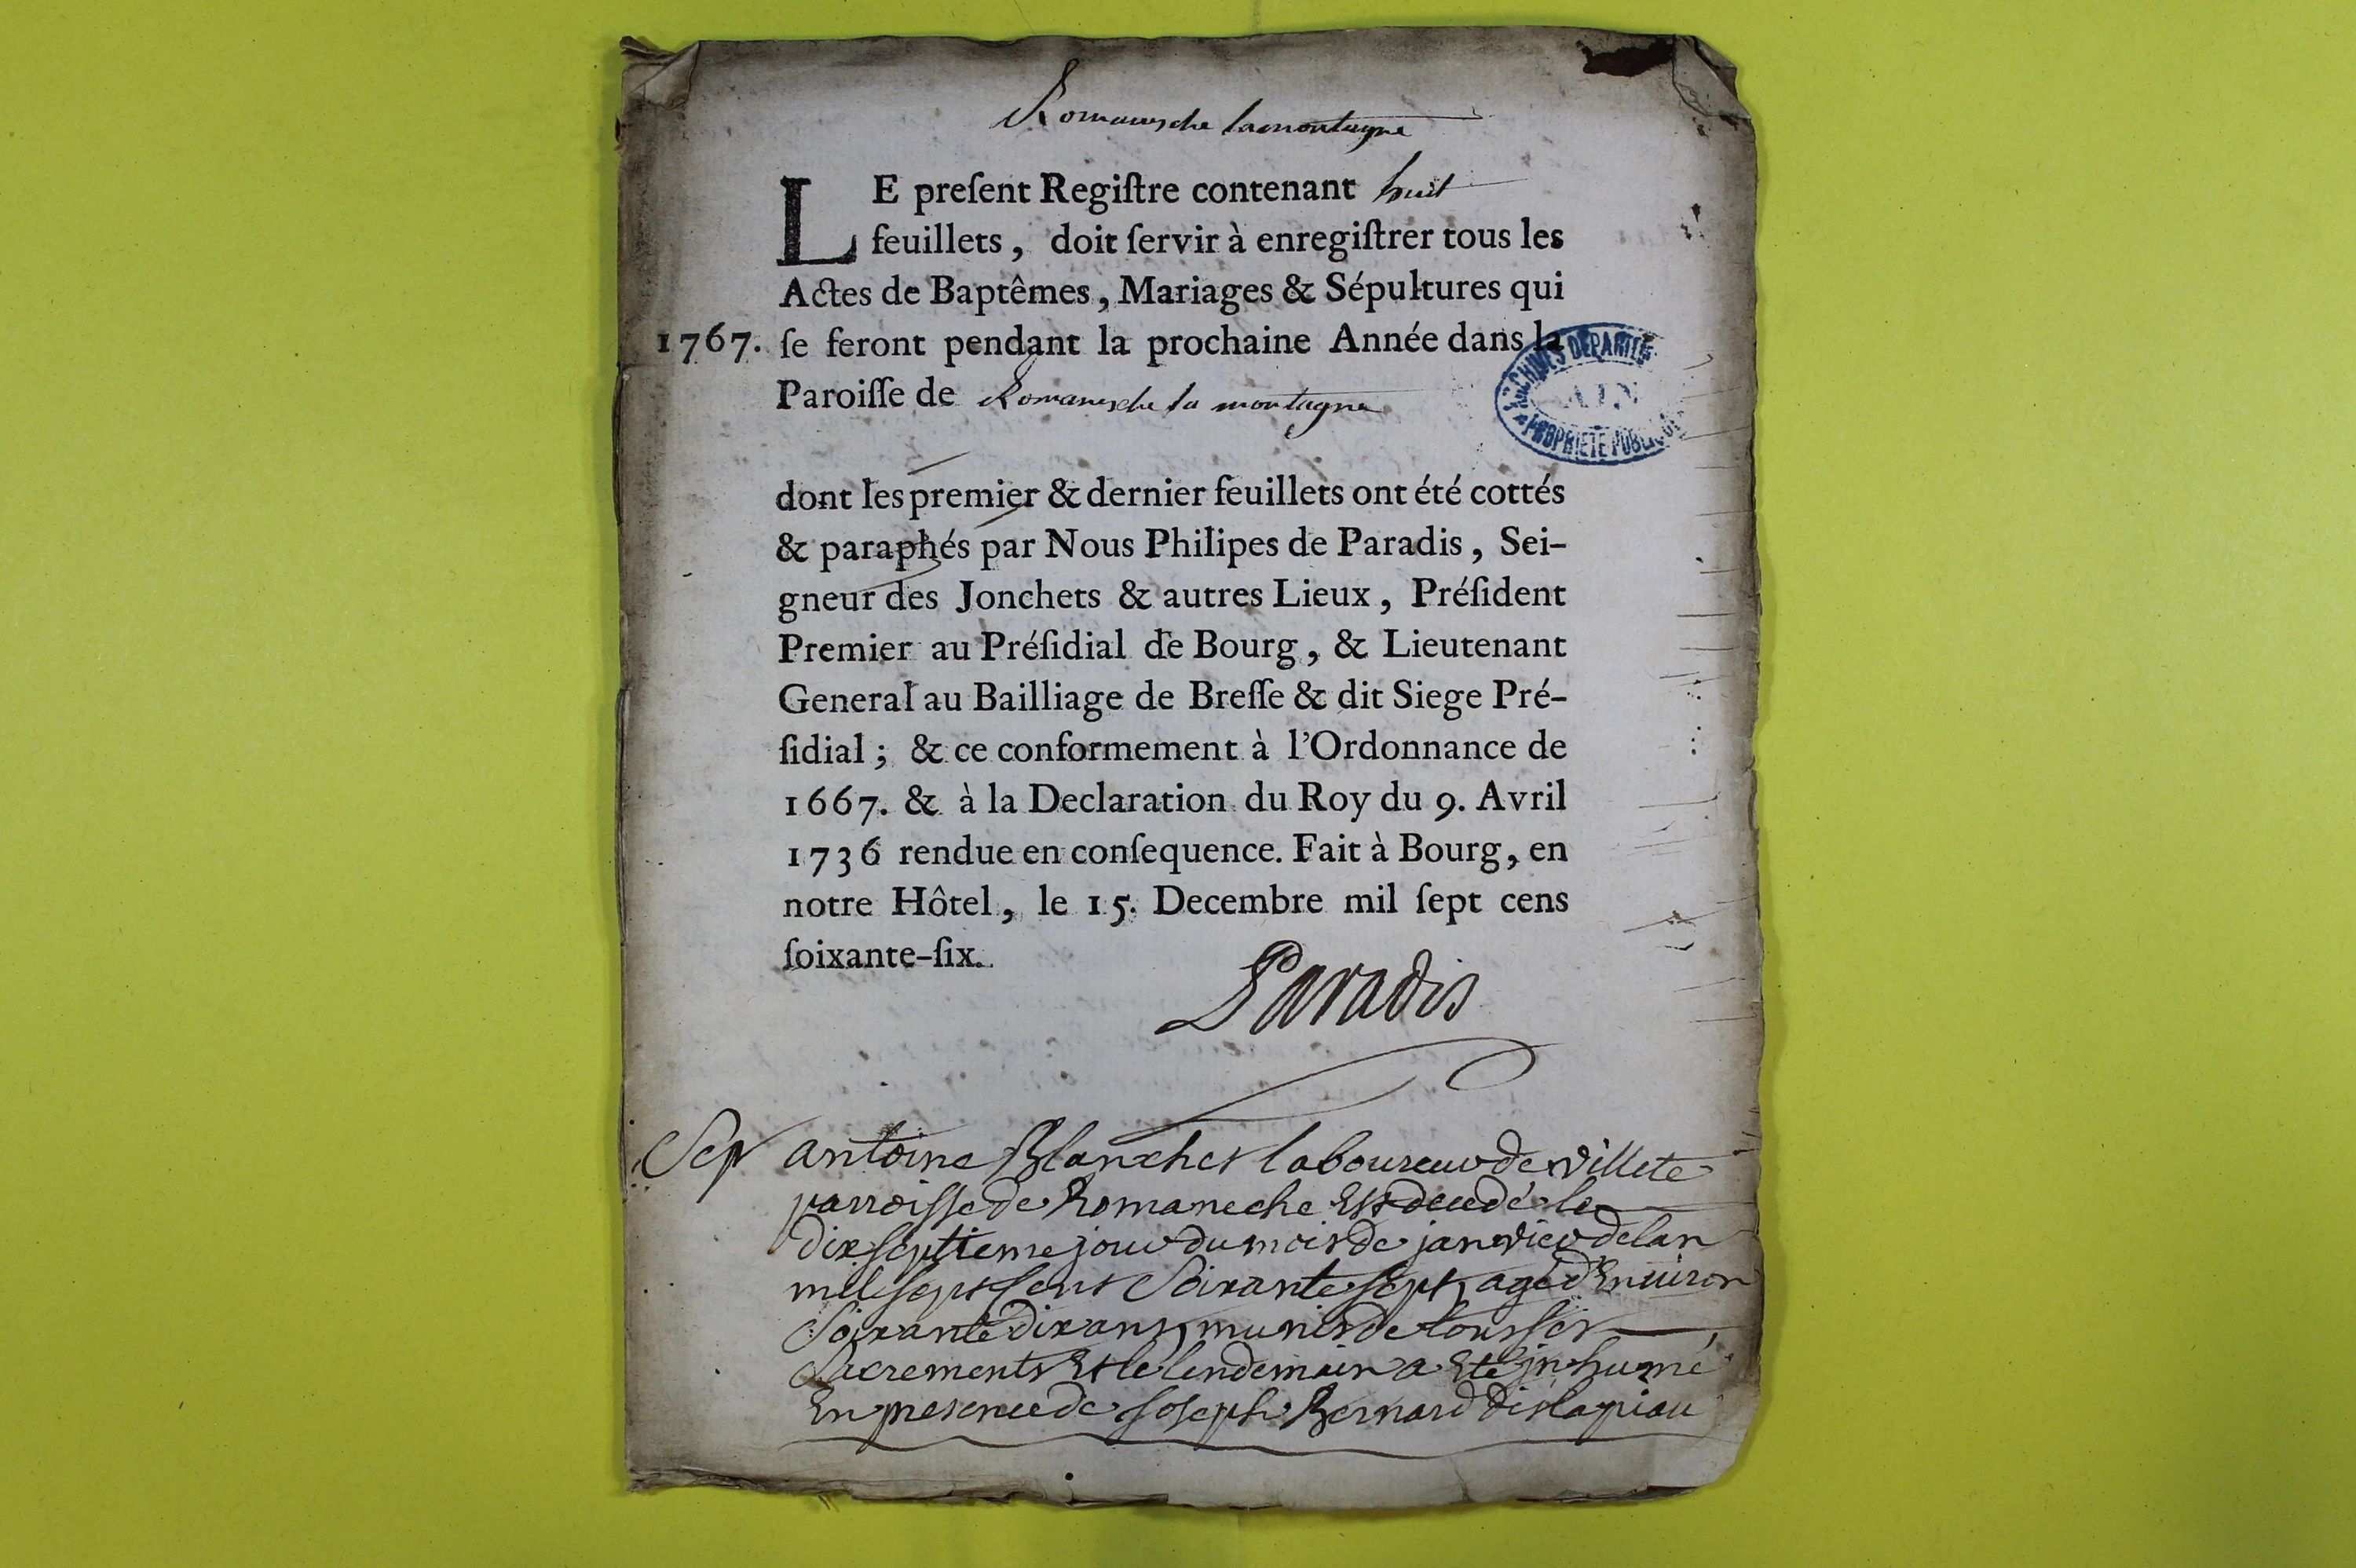 Romanesche lamontagne
LE preſent Regiſtre contenant huit
feuillets, doit ſervir à enregiſtrer tous les
Actes de Baptêmes, Mariages & Sépultures qui
1767. ſe feront pendant la prochaine Année dans la
Paroiſſe de Romanesche la montagne
ARCHIVES DEPARTEM
AIN
PROPRIETE PUBLIQUE
dont les premier & dernier feuillets ont été cottés
& paraphés par Nous Philipes de Paradis, Sei-
gneur des Jonchets & autres Lieux, Préſident
Premier au Préſidial de Bourg, & Lieutenant
General au Bailliage de Breſſe & dit Siege Pré-
ſidial; & ce conformement à l'Ordonnance de
1667. & à la Declaration du Roy du 9. Avril
1736 rendue en conſequence. Fait à Bourg, en
notre Hôtel, le 15. Decembre mil ſept cens
ſoixante-ſix.
Paradis
Sep antoine Blanchet laboureur de villete
parroisse de Romaneche Est decedé le
dix septieme jour du mois de janvier de lan
mil sept cent Soixante sept, agé d'Environ
Soixante dix ans, munis de tous ses
Sacrements Et le lendemain a Eté inhumé
En presence de Joseph Bernard dit